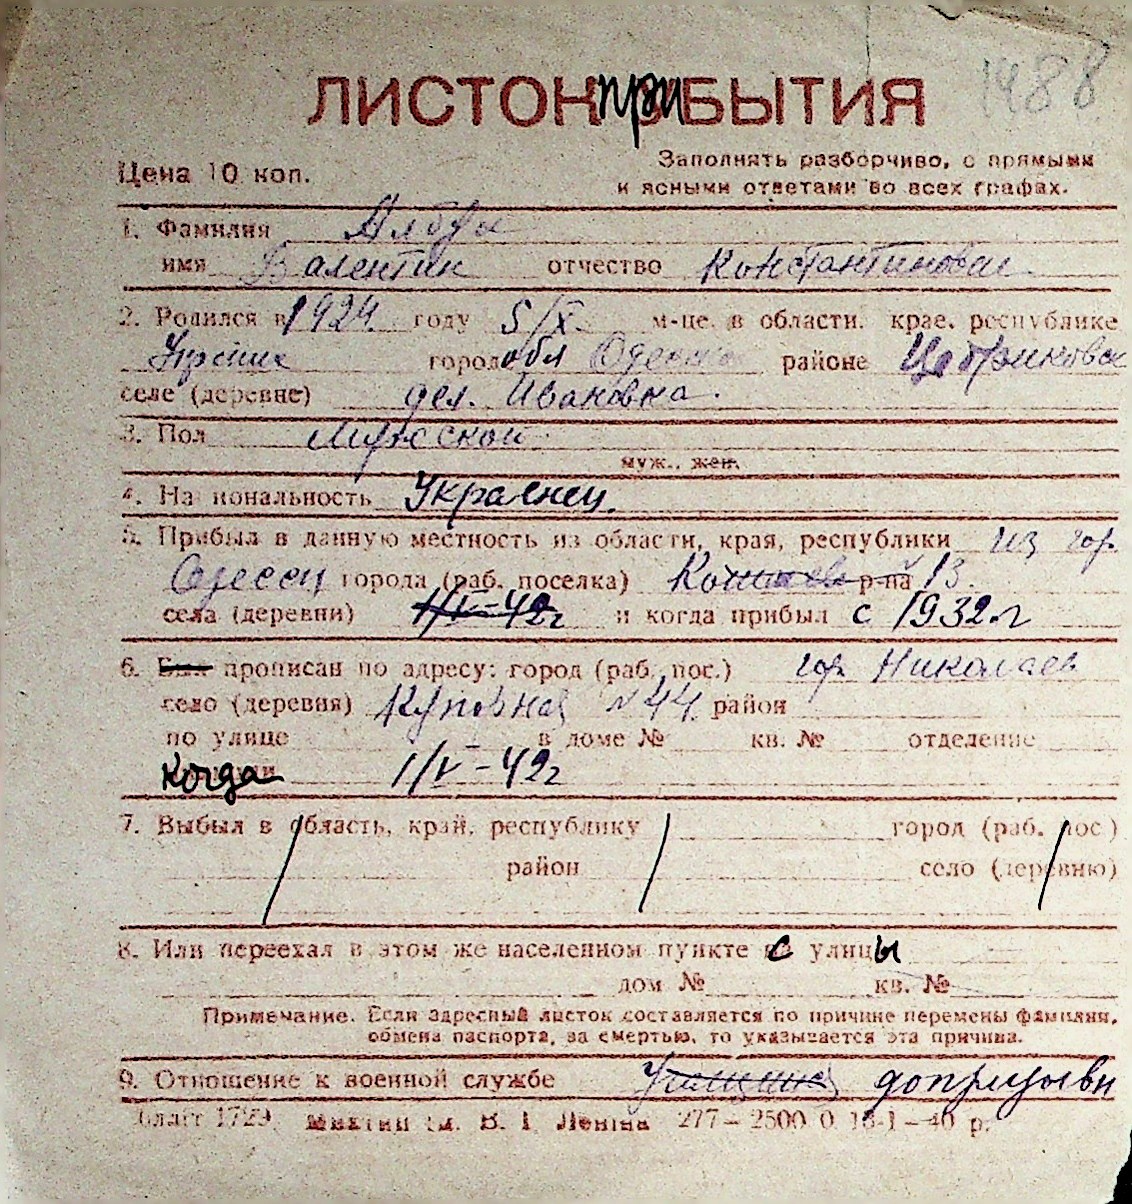 1488
ЛИСТОК при БЫТИЯ
Цена 10 коп.
Заполнять разборчиво, с прямыми
и ясными ответами во всех графах.
1. Фамилия
имя Валентин отчество Константинович
2. Родился в 1924 году 5/X м-це, в области, крае, республике
город обл Одесска районе Цебриковск
селе (деревне) дел. Ивановка.
3. Пол Мужской
муж., жен.
4. Национальность Украенец.
5. Прибыл в данную местность из области, края, республики из гор
Одессы города (раб. поселка) р-на
села (деревни) 1/V-42г и когда прибыл с 1932 г
6. Был прописан по адресу: город (раб. пос.) гор Николаев
село (деревня) №44 район
по улице в доме № кв. № отделение
когда 1/V-42г
7. Выбыл в область, край, республику город (раб. пос.)
район село (деревню)
8. Или переехал в этом же населенном пункте с улицы
дом № кв. №
Примечание. Если адресный листок составляется по причине перемены фамилии,
обмена паспорта, за смертью, то указывается эта причина.
9. Отношение к военной службе допризывн
1729. В. І. Леніна 277—2500 0 16-1—40 р.